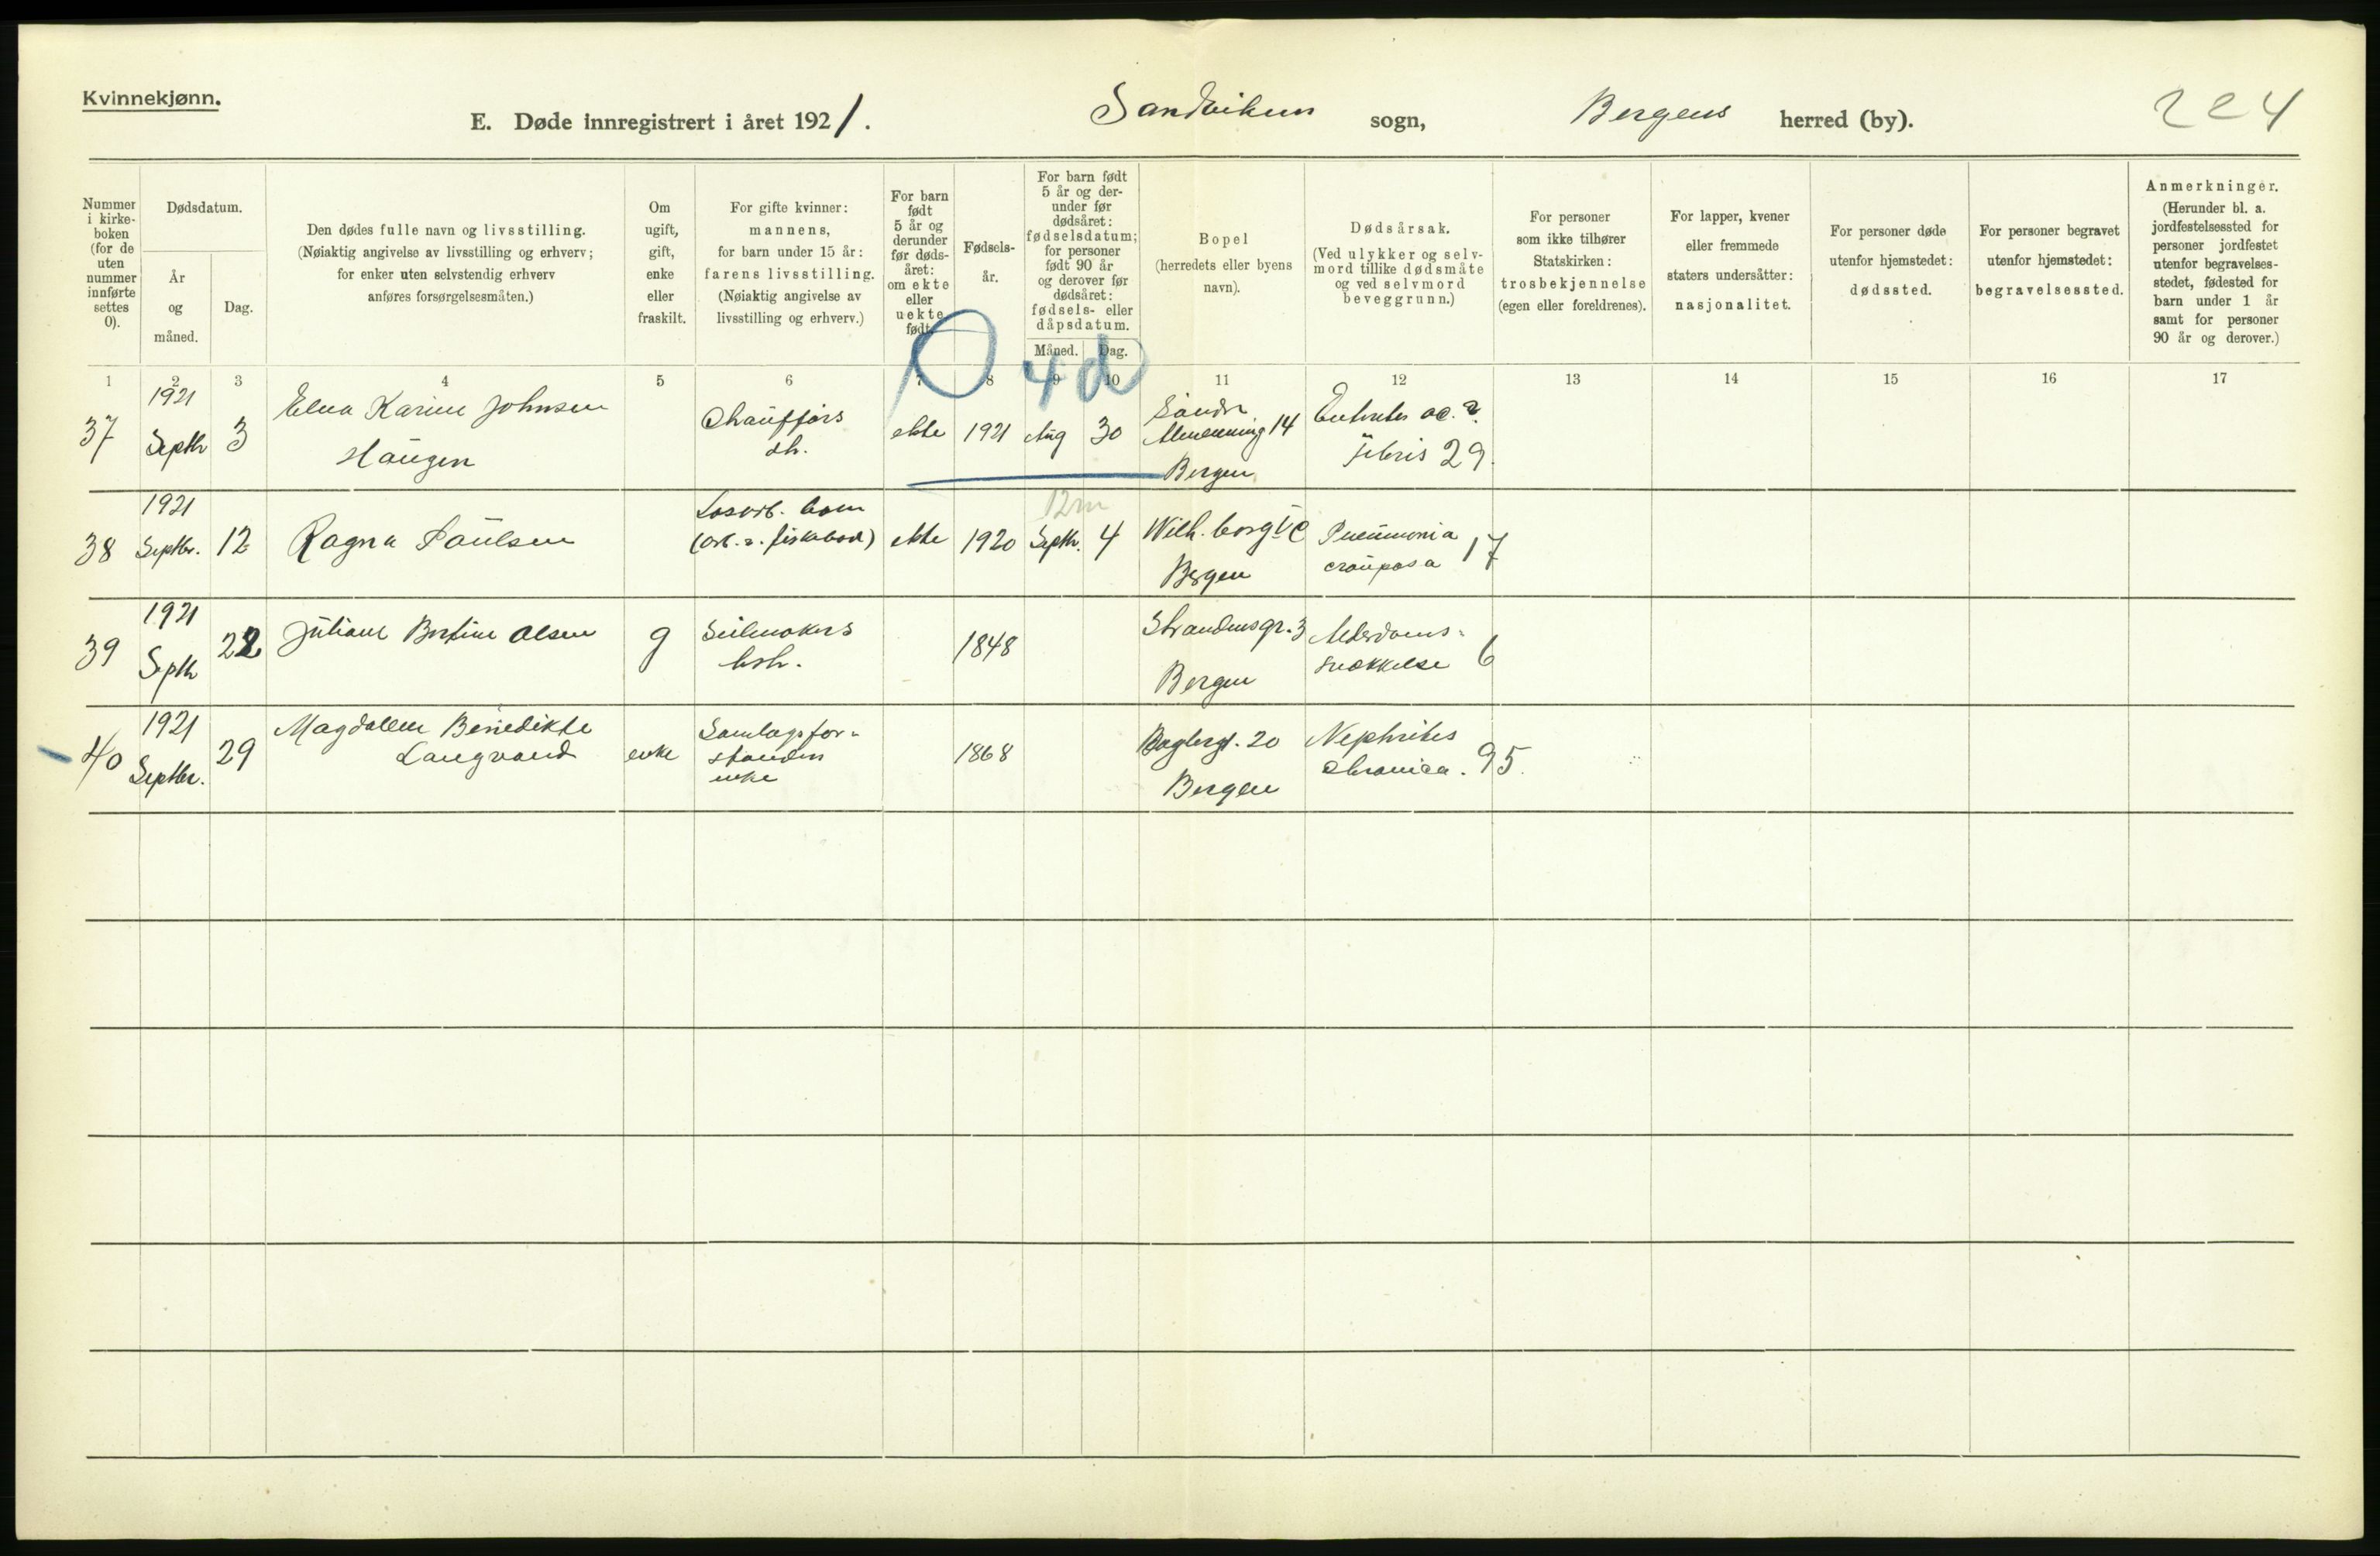 Kvinnekjønn.
E. Døde innregistrert i året 1921.
Sandvikens sogn,
Bergens herred (by).
224
Nummer i kirke-boken (for de uten nummer innførte settes 0).
Dødsdatum.
År og måned.
Dag.
Den dødes fulle navn og livsstilling.
(Nøiaktig angivelse av livsstilling og erhverv;
for enker uten selvstendig erhverv
anføres forsørgelsesmåten.)
Om ugift, gift, enke eller fraskilt.
For gifte kvinner:
mannens,
for barn under 15 år:
farens livsstilling.
(Nøiaktig angivelse av
livsstilling og erhverv.)
For barn født 5 år og derunder før døds-året: om ekte eller uekte født.
Fødsels-år.
For barn født 5 år og der-under før dødsåret: fødselsdatum; for personer født 90 år og derover før dødsåret: fødsels- eller dåpsdatum.
Måned.
Dag.
Bopel
(herredets eller byens
navn).
Dødsårsak.
(Ved ulykker og selv-
mord tillike dødsmåte
og ved selvmord
beveggrunn.)
For personer
som ikke tilhører
Statskirken:
trosbekjennelse
(egen eller foreldrenes).
For lapper, kvener
eller fremmede
staters undersåtter:
nasjonalitet.
For personer døde
utenfor hjemstedet:
dødssted.
For personer begravet
utenfor hjemstedet:
begravelsessted.
Anmerkninger.
(Herunder bl. a.
jordfestelsessted for
personer jordfestet
utenfor begravelses-
stedet, fødested for
barn under 1 år
samt for personer
90 år og derover.)
1 2 3 4 5 6 7 8 9 10 11 12 13 14 15 16 17
0 4d
37
1921 Septbr
3
Elna Karine Johnsen
Haugen
Chaufførs
dh.
ekte
1921
Aug
30
Søndre
Almenning 14
Bergen
Enteritis ac.?
Febris 29.
38
1921 Septbr.
12
Ragna Paulsen
Losarb. barn
ekte
1920
12m
Septbr.
4
Wilh. Bergen
Pneumonia
crouposa 17
39
1921 Septbr
22
Juliane Bertine Olsen
g
Seilmakers
hstr.
1848
Strandensgr. 3
Bergen
Alderdoms-
svækkelse 6
40
1921
Septbr.
29
Magdalene Benedikte
Langvand
enke
Samlagsfor-
standers
enke
1868
Baglergt. 20
Bergen
Nephritis
chronica. 95.